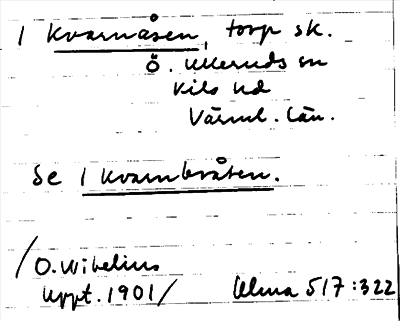 1 Kvarnåsen, torp sk.
Ö. Ulleruds sn
Kils hd
Värml. län.
Se 1 Kvarnbråten.
/O. Wibelius
uppt. 1901/ Alma 517:322